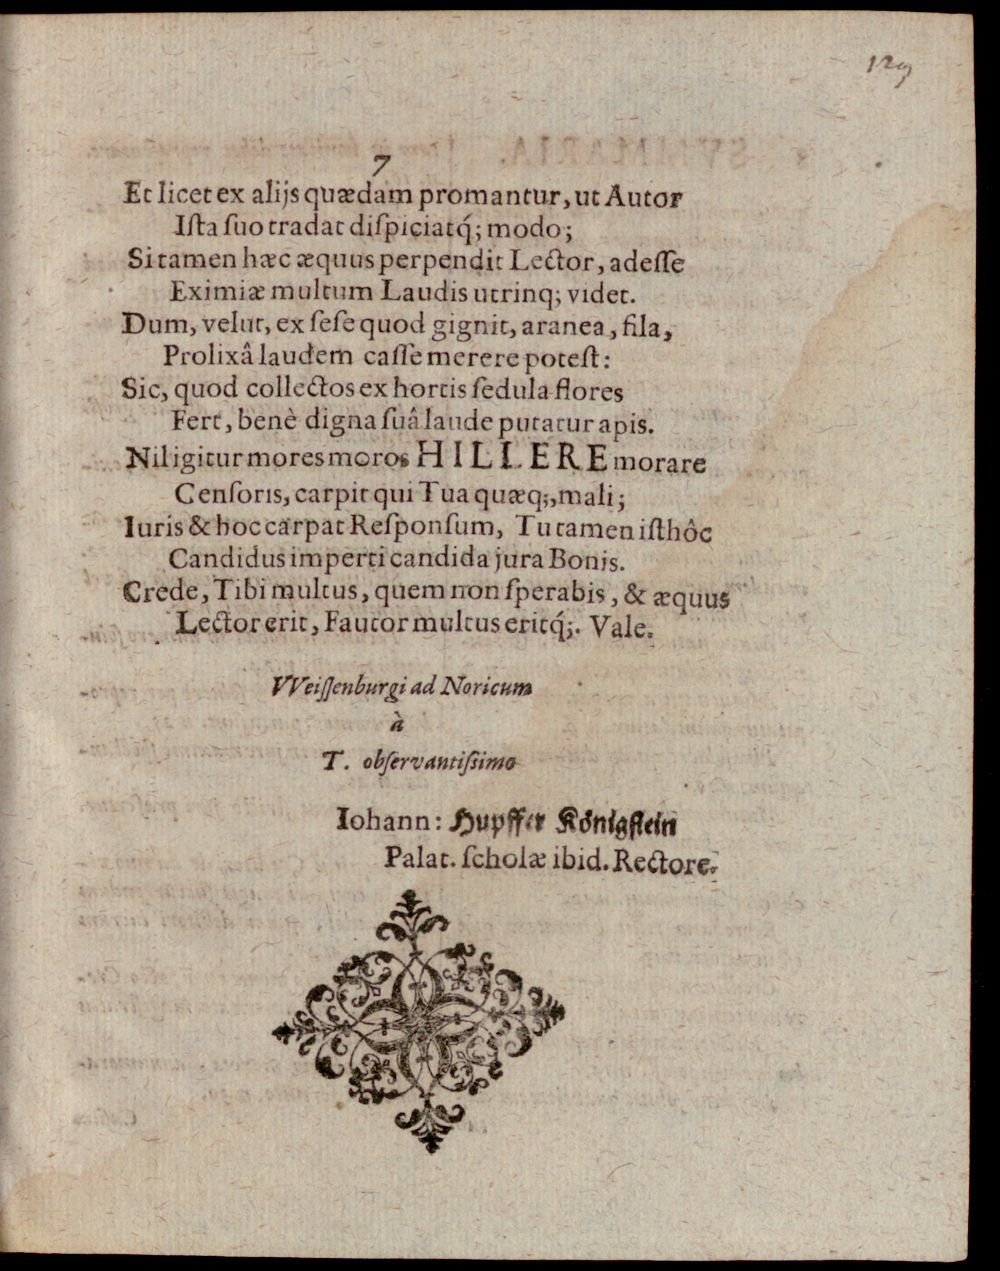 129
7
Et licet ex alijs quædam promantur, ut Autor
Iſta ſuo tradat diſpiciatq́; modo;
Si tamen hæc æquus perpendit Lector, adeſſe
Eximiæ multum Laudis utrinq; videt.
Dum, velut, ex ſeſe quod gignit, aranea, fila,
Prolixâ laudem caſſe merere poteſt:
Sic, quod collectos ex hortis ſedula flores
Fert, benè digna ſuâ laude putatur apis.
Nil igitur mores moros HILLERE morare
Cenſoris, carpit qui Tua quæq;, mali;
Iuris & hoc carpat Reſponſum, Tu tamen iſthôc
Candidus imperti candida jura Bonis.
Crede, Tibi multus, quem non ſperabis, & æquus
Lector erit, Fautor multus eritq́;. Vale.
VVeiſſenburgi ad Noricum
à
T. obſervantiſſimo
Iohann: Hupffer Königſtein
Palat. ſcholæ ibid. Rectore.